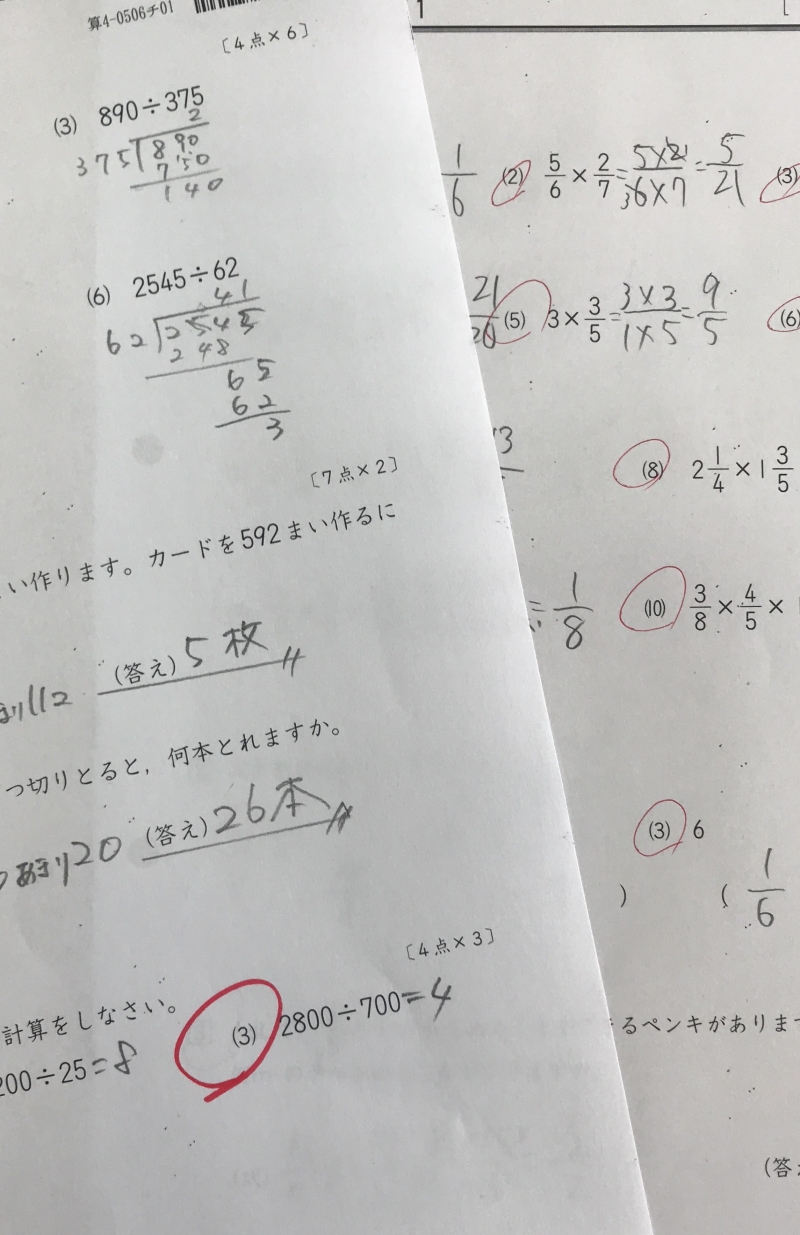 算4-0506チ01
[4点×6]
(3) 890÷375
2
375 890
750
140
(6) 2545÷62
41
62 2545
248
65
62
3
[7点×2]
い作ります。カードを592まい作るに
112
(答え) 5枚
つ切りとると，何本とれますか。
あまり20 (答え) 26本
[4点×3]
計算をしなさい。
200÷25=8
(3) 2800÷700=4
1
1/6
(2) 5/6×2/7=5×2/6×7=5/21
3
(3)
21/20
(5) 3×3/5=3×3/1×5=9/5
(6)
(8) 2 1/4×1 3/5
=1/8
(10) 3/8×4/5×
(3) 6
) ( 1/6
るペンキがありま
(答